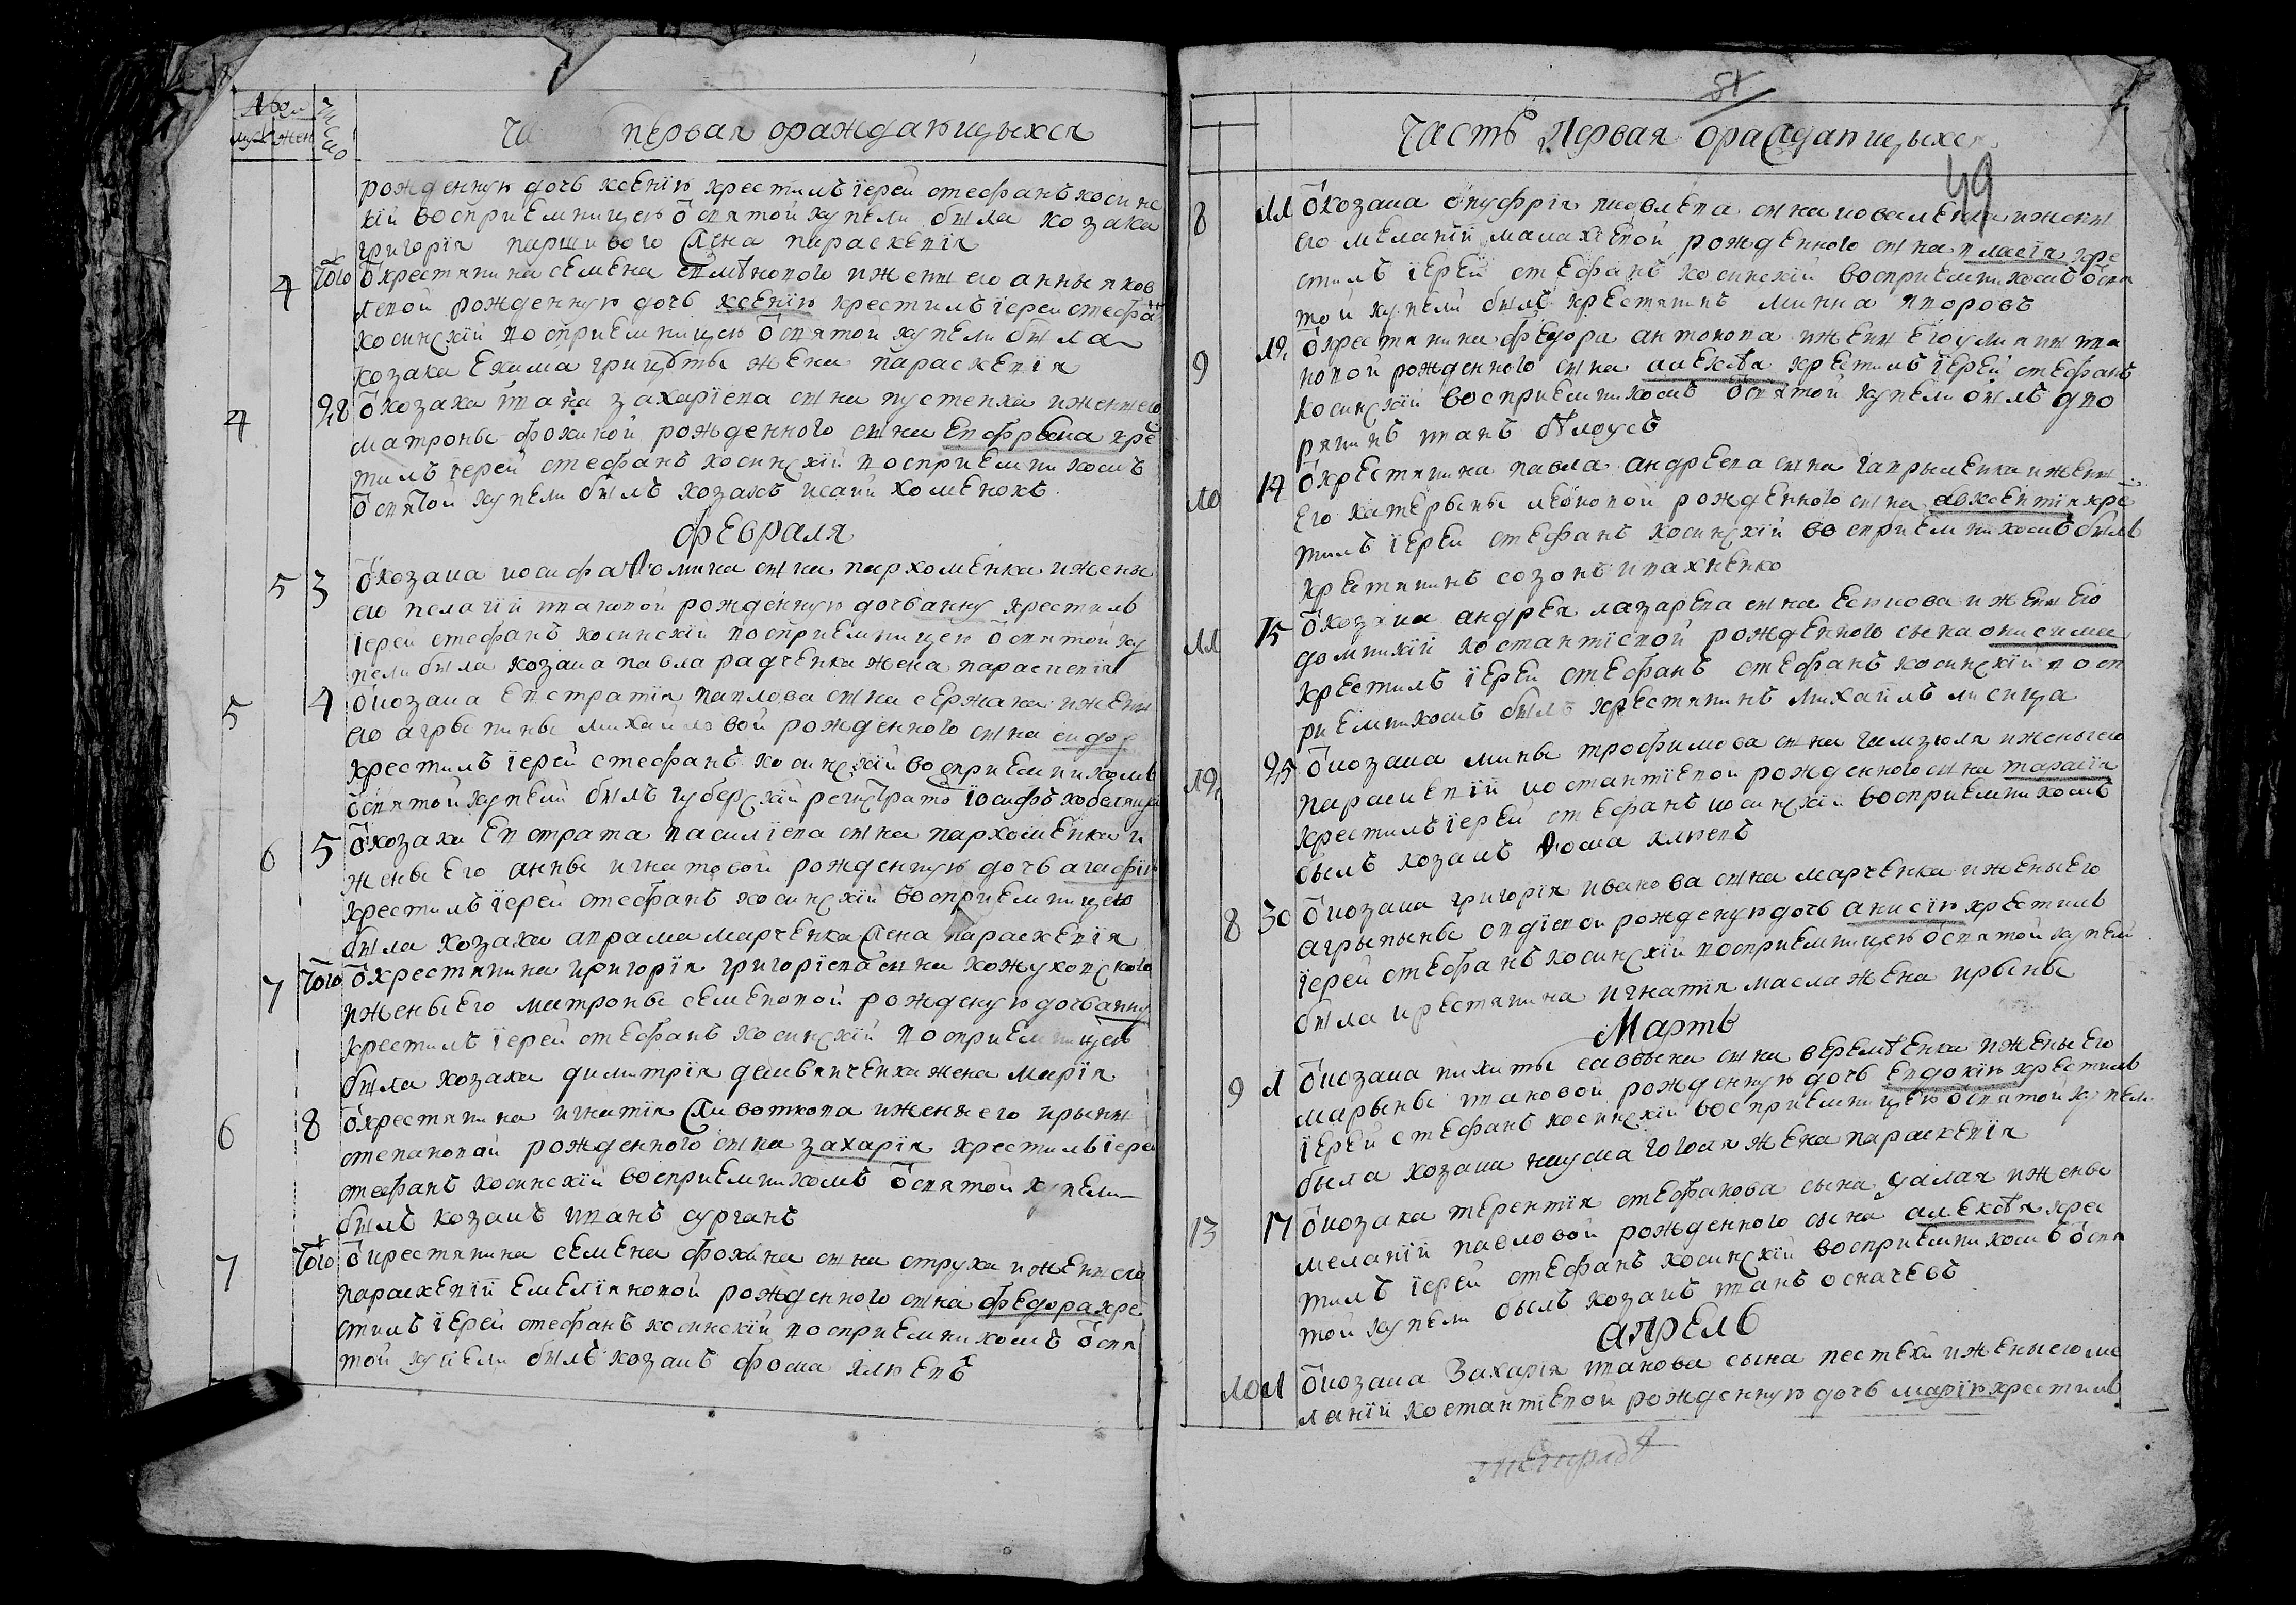 Число
муж жен
первая ораждающихся
рожденную дочь ксенїю крестилъ їерей стефанъ косинс
кїй восприемницею ѿ святой купели была козака
григорїя паршивого жена параскевїя
4 того ѿ крестянина семена и жены его анны яков
левой рожденную дочь ксенїю крестилъ їерей стефа
косинскїй восприемницею ѿ святой купели была
козака екима григ жена параскевїя
4 28 ѿ козака ивана захарїева сына пустенка и жены его
матроны фокиной рожденного сына евфрема кре
тилъ їерей стефанъ косинскїй восприемникомъ
ѿ святой купели былъ козакъ исаїй хоменокъ
февраля
5 3 ѿ козака иосифа Ѳомина сына пархоменка и жены
его пелагїй ивановой рожденную дочь анну крестилъ
їерей стефанъ косинскїй восприемницею ѿ святой ку
пели была козака павла радченка жена параскевїя
5 4 ѿ козака евстратїя павлова сына сержана и жены
его агрыпины михайловой рожденного сына сидор
крестилъ їерей стефанъ косинскїй восприемникомъ
ѿ святой купели былъ губерскїй регистрато їосифъ кобеляцк
6 5 ѿ козака евстрата василїева сына пархоменка и
жены его анны игнатовой рожденную дочь агафїю
крестилъ їерей стефанъ косинскїй восприемницею
была козака аврама марченка жена параскевїя
7 того ѿ крестянина григорїя григорїева сына кожуховского
и жены его матроны семеновой рожденую дочь анну
крестилъ їерей стефанъ косинскїй восприемницею
была козака димитрїя демянченка жена марїя
6 8 ѿ крестянина игнатїя животкова и жены его ирыны
степановой рожденного сына захарїя крестилъ їере
стефанъ косинскїй восприемникомъ ѿ святой купели
былъ козакъ иванъ сурганъ
7 того ѿ крестянина семена фокина сына струка и жены его
параскевїй емелїяновой рожденного сына федора кре
стилъ їерей стефанъ косинскїй восприемникомъ ѿ свя
той купели былъ козакъ фома клюевъ
51
49
Часть Первая ораждающихся
8 11 ѿ козака онуфрїя яковлева сына коваленка и жены
его меланїй малахїевой рожденного сына власїя кре
стилъ їерей стефанъ косинскїй восприемникомъ ѿ свя
той купели былъ крестянинъ минна
9 12 ѿ крестянина федора антонова и жены его улияны ива
новой рожденного сына алексѣя крестилъ їерей стефанъ
косинскїй восприемникомъ ѿ святой купели былъ дво
рянинъ иванъ бѣлоусъ
10 14 ѿ крестянина павла андреева сына гаврыленка и жены
его катерыны леоновой рожденного сына авксентїя кре
тилъ їерей стефанъ косинскїй восприемникомъ былъ
крестянинъ созонъ ивахненко
11 15 ѿ козака андрея лазарева сына еснова и жены его
домникїй костантїевой рожденного сына онисима
крестилъ їерей стефанъ стефанъ косинскїй восп
риемникомъ былъ крестянинъ михайлъ лисица
12 25 ѿ козака мины трофимова сына гамзюля и жены его
параскевїй костантїевой рожденного сына тарасїя
крестилъ їерей стефанъ косинскїй восприемникомъ
былъ козакъ Ѳома клюевъ
8 30 ѿ козака григорїя иванова сына марченка и жены его
агрыпыны авдїевой рожденую дочь анисїю крестилъ
їерей стефанъ косинскїй восприемницею ѿ святой купели
была крестянина игнатїя масла жена ирына
Мартъ
9 1 ѿ козака никиты саввына сына веремѣенка и жены его
марыны ивановой рожденную дочь евдокїю крестилъ
їерей стефанъ косинскїй восприемницею ѿ святой купели
была козака наума гоголя жена параскевїя
13 17 ѿ козака терентїя стефанова сына галая и жены
меланїй павловой рожденного сына алексѣя крес
тилъ їерей стефанъ косинскїй восприемникомъ ѿ свя
той купели былъ козакъ иванъ осначевъ
апрель
10 1 ѿ козака Захарїя иванова сына пестехи и жены его ме
ланїй костантїевой рожденную дочь марїю крестилъ